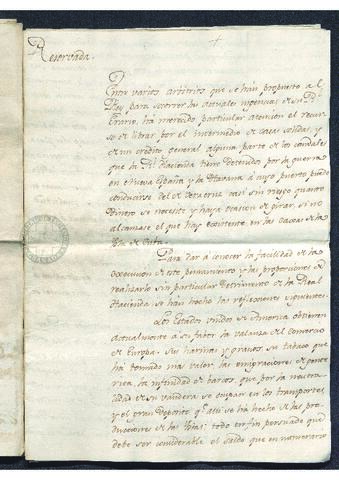 Reservada.
Entre varios arbitrios que se han propuesto al
Rey para socorrer las actuales urgencias de su Rl.
Erario, ha merecido particular atencion el recur-
so de librar por el intermedio de casas solidas, y
de un crédito general alguna parte de los caudales
que la Rl. Hacienda tiene detenidos por la guerra
en Nueva España y la Havana á cuyo puerto puede
conducirse del de Veracruz casi sin riesgo quanto
dinero se necesite y haya ocasion de girar, si no
alcanzase el que hay existente en las Caxas de la
Isla de Cuba.
Para dar á conocer la facilidad de la
execucion de este pensamiento y las proporciones de
realizarlo sin particular detrimento de la Real
Hacienda se han hecho las reflexiones siguientes.
Los Estados unidos de America obtienen
actualmente á su favor la valanza del comercio
de Europa. Sus harinas y granos, su tabaco que
ha tomado una valor, las emigraciones de gente
rica, la infinidad de barcos, que por la neutra-
lidad de su vandera se ocupan en los transportes,
y el gran deposito q.e alli se ha hecho de las pro-
ducciones de las Islas; todo en fin persuade que
debe ser considerable el saldo que en numerario